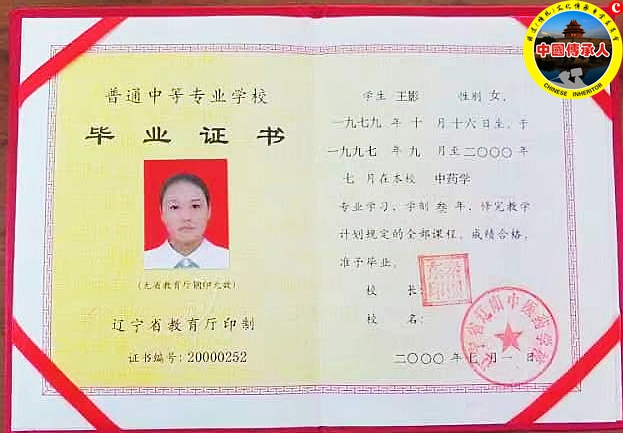 普通中等专业学校
毕业证书
(无省教育厅钢印无效)
辽宁省教育厅印制
证书编号:20000252
学生 王影 性别 女,
一九七九 年 十 月十六日生,于
一九九七 年 九 月至二〇〇〇年
七 月在本校 中药学
专业学习,学制 叁 年,修完教学
计划规定的全部课程,成绩合格,
准予毕业。
校 长:
校 名:
二〇〇〇 年七月 一 日
中國傳承人
CHINESE INHERITOR
C